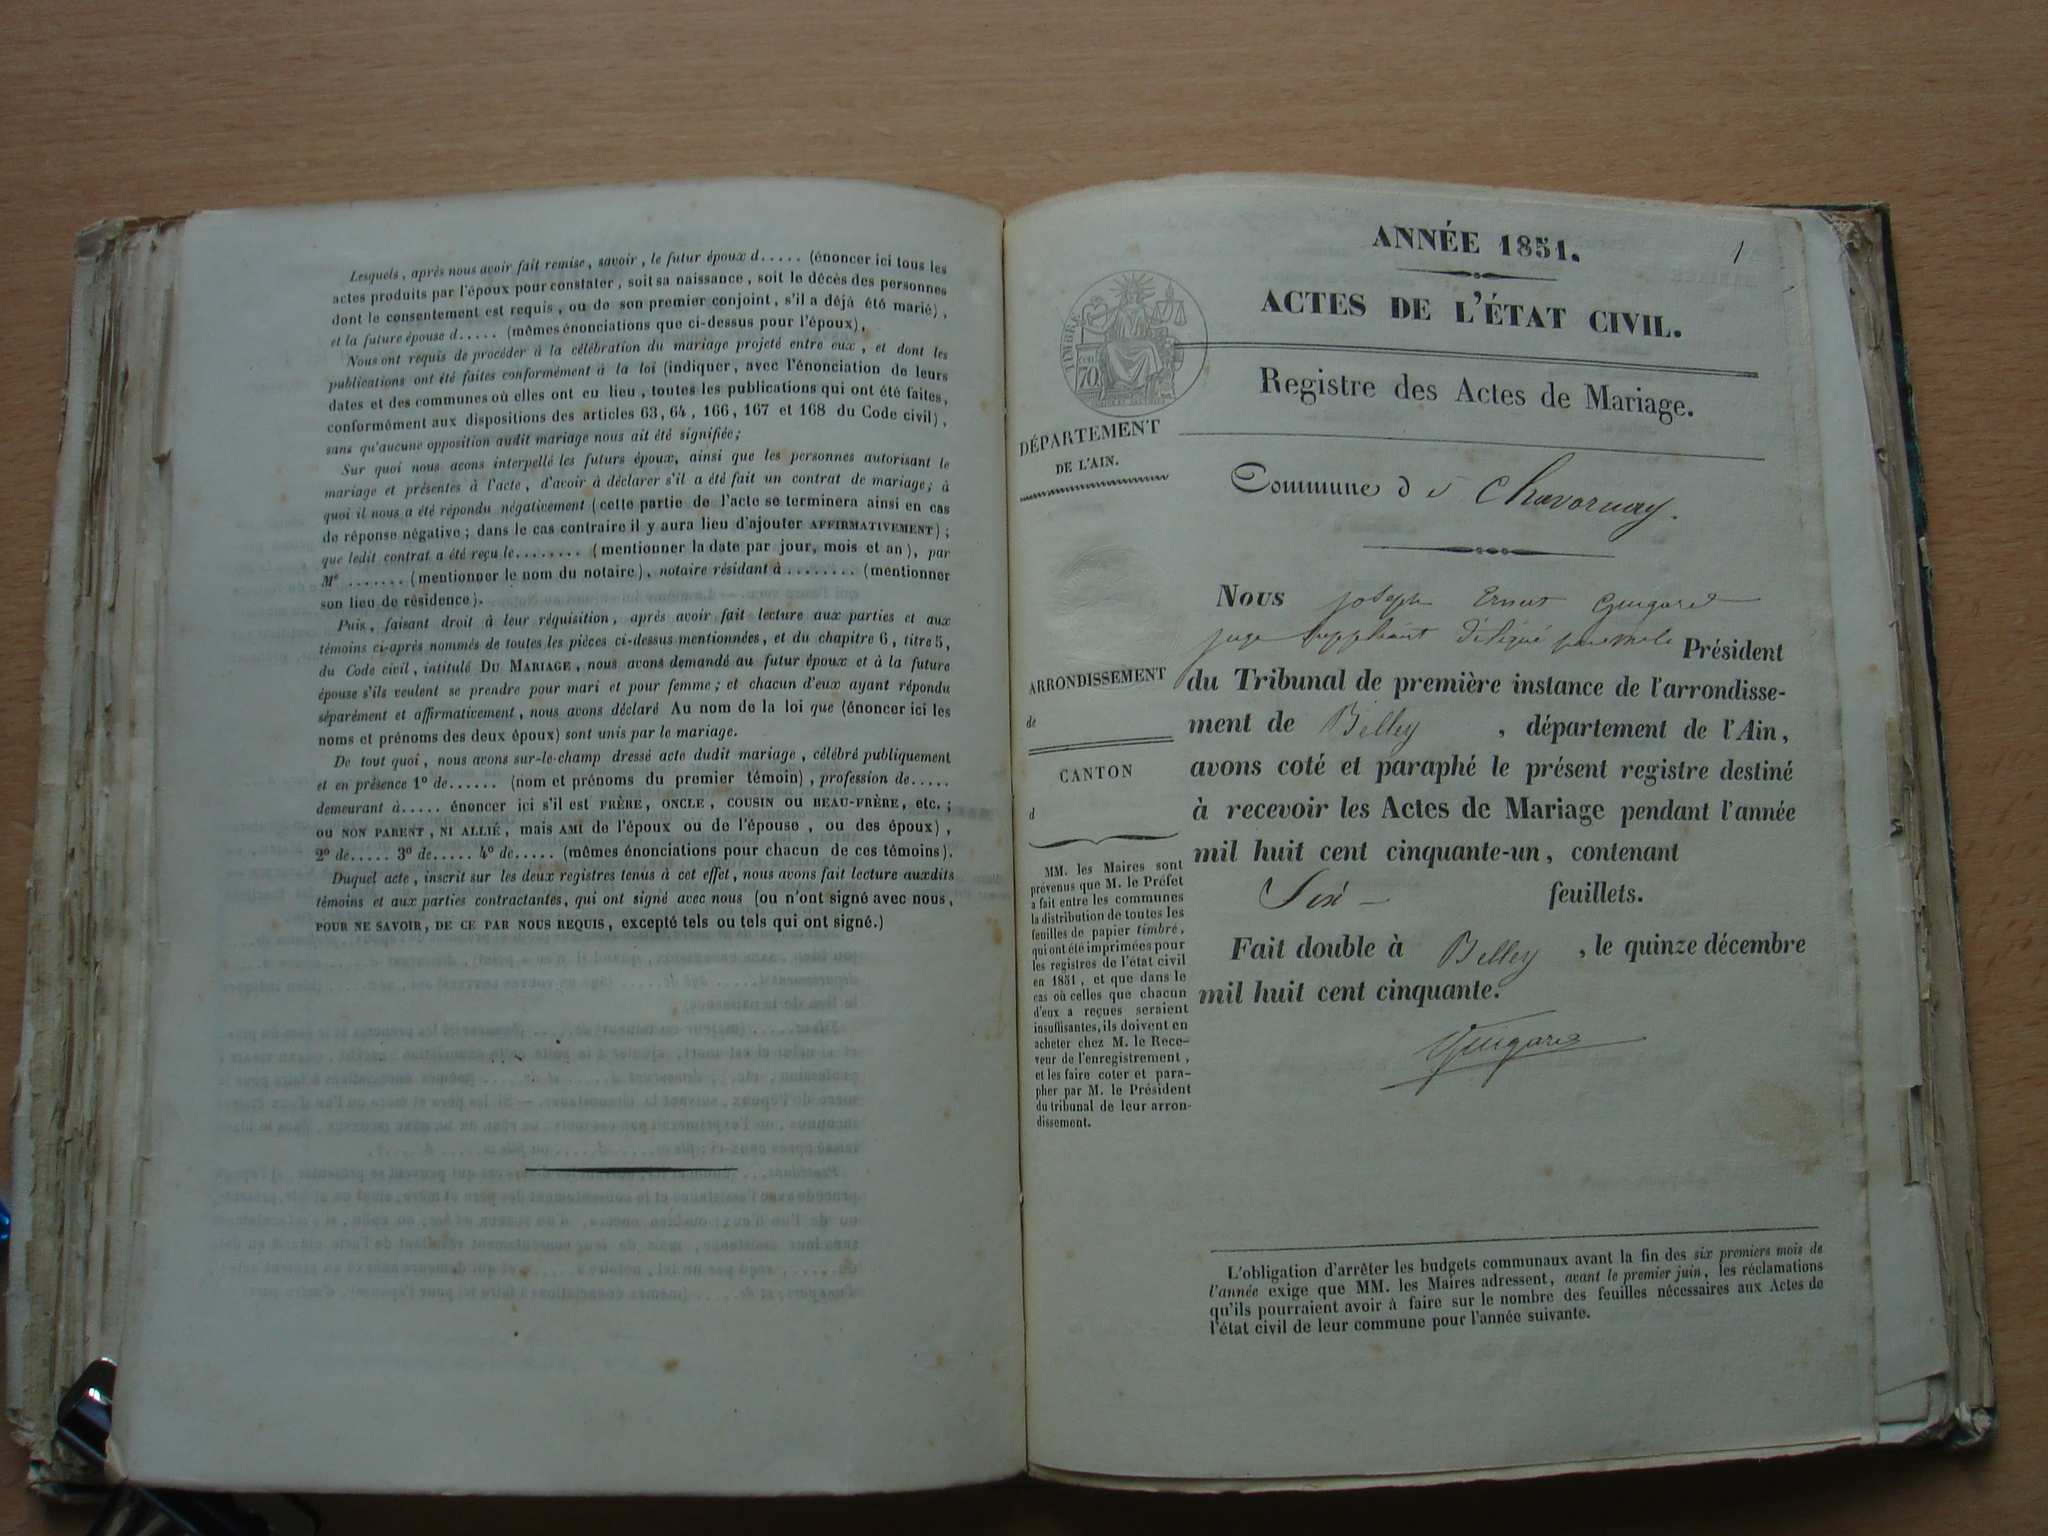 Lesquels, après nous avoir fait remise, savoir, le futur époux d..... (énoncer ici tous les
actes produits par l'époux pour constater, soit sa naissance, soit le décès des personnes
dont le consentement est requis, ou de son premier conjoint, s'il a déjà été marié),
et la future épouse d..... (mêmes énonciations que ci-dessus pour l'époux),
Nous ont requis de procéder à la célébration du mariage projeté entre eux, et dont les
publications ont été faites conformément à la loi (indiquer, avec l'énonciation de leurs
dates et des communes où elles ont eu lieu, toutes les publications qui ont été faites,
conformément aux dispositions des articles 63, 64, 166, 167 et 168 du Code civil),
sans qu'aucune opposition audit mariage nous ait été signifiée;
Sur quoi nous avons interpellé les futurs époux, ainsi que les personnes autorisant le
mariage et présentes à l'acte, d'avoir à déclarer s'il a été fait un contrat de mariage; à
quoi il nous a été répondu négativement (cette partie de l'acte se terminera ainsi en cas
de réponse négative; dans le cas contraire il y aura lieu d'ajouter AFFIRMATIVEMENT);
que ledit contrat a été reçu le........ (mentionner la date par jour, mois et an), par
Me ....... (mentionner le nom du notaire), notaire résidant à ........ (mentionner
son lieu de résidence).
Puis, faisant droit à leur réquisition, après avoir fait lecture aux parties et aux
témoins ci-après nommés de toutes les pièces ci-dessus mentionnées, et du chapitre 6, titre 5,
du Code civil, intitulé DU MARIAGE, nous avons demandé au futur époux et à la future
épouse s'ils veulent se prendre pour mari et pour femme; et chacun d'eux ayant répondu
séparément et affirmativement, nous avons déclaré Au nom de la loi que (énoncer ici les
noms et prénoms des deux époux) sont unis par le mariage.
De tout quoi, nous avons sur-le-champ dressé acte dudit mariage, célébré publiquement
et en présence 1º de...... (nom et prénoms du premier témoin), profession de.....
demeurant à..... énoncer ici s'il est FRÈRE, ONCLE, COUSIN OU BEAU-FRÈRE, etc.;
OU NON PARENT, NI ALLIÉ, mais AMI de l'époux ou de l'épouse, ou des époux),
2º de..... 3º de..... 4º de..... (mêmes énonciations pour chacun de ces témoins).
Duquel acte, inscrit sur les deux registres tenus à cet effet, nous avons fait lecture auxdits
témoins et aux parties contractantes, qui ont signé avec nous (ou n'ont signé avec nous,
POUR NE SAVOIR, DE CE PAR NOUS REQUIS, excepté tels ou tels qui ont signé.)
1
ANNÉE 1851.
ACTES DE L'ÉTAT CIVIL.
TIMBRE
70
Registre des Actes de Mariage.
DÉPARTEMENT
DE L'AIN.
Commune de Chavornay.
Nous Joseph Ernest Guigard
juge suppléant délégué par Mr le Président
ARRONDISSEMENT
de
CANTON
d
du Tribunal de première instance de l'arrondisse-
ment de Belley, département de l'Ain,
avons coté et paraphé le présent registre destiné
à recevoir les Actes de Mariage pendant l'année
mil huit cent cinquante-un, contenant
Six feuillets.
Fait double à Belley, le quinze décembre
mil huit cent cinquante.
Guigard
MM. les Maires sont
prévenus que M. le Préfet
a fait entre les communes
la distribution de toutes les
feuilles de papier timbré,
qui ont été imprimées pour
les registres de l'état civil
en 1851, et que dans le
cas où celles que chacun
d'eux a reçues seraient
insuffisantes, ils doivent en
acheter chez M. le Rece-
veur de l'enregistrement,
et les faire coter et para-
pher par M. le Président
du tribunal de leur arron-
dissement.
L'obligation d'arrêter les budgets communaux avant la fin des six premiers mois de
l'année exige que MM. les Maires adressent, avant le premier juin, les réclamations
qu'ils pourraient avoir à faire sur le nombre des feuilles nécessaires aux Actes de
l'état civil de leur commune pour l'année suivante.